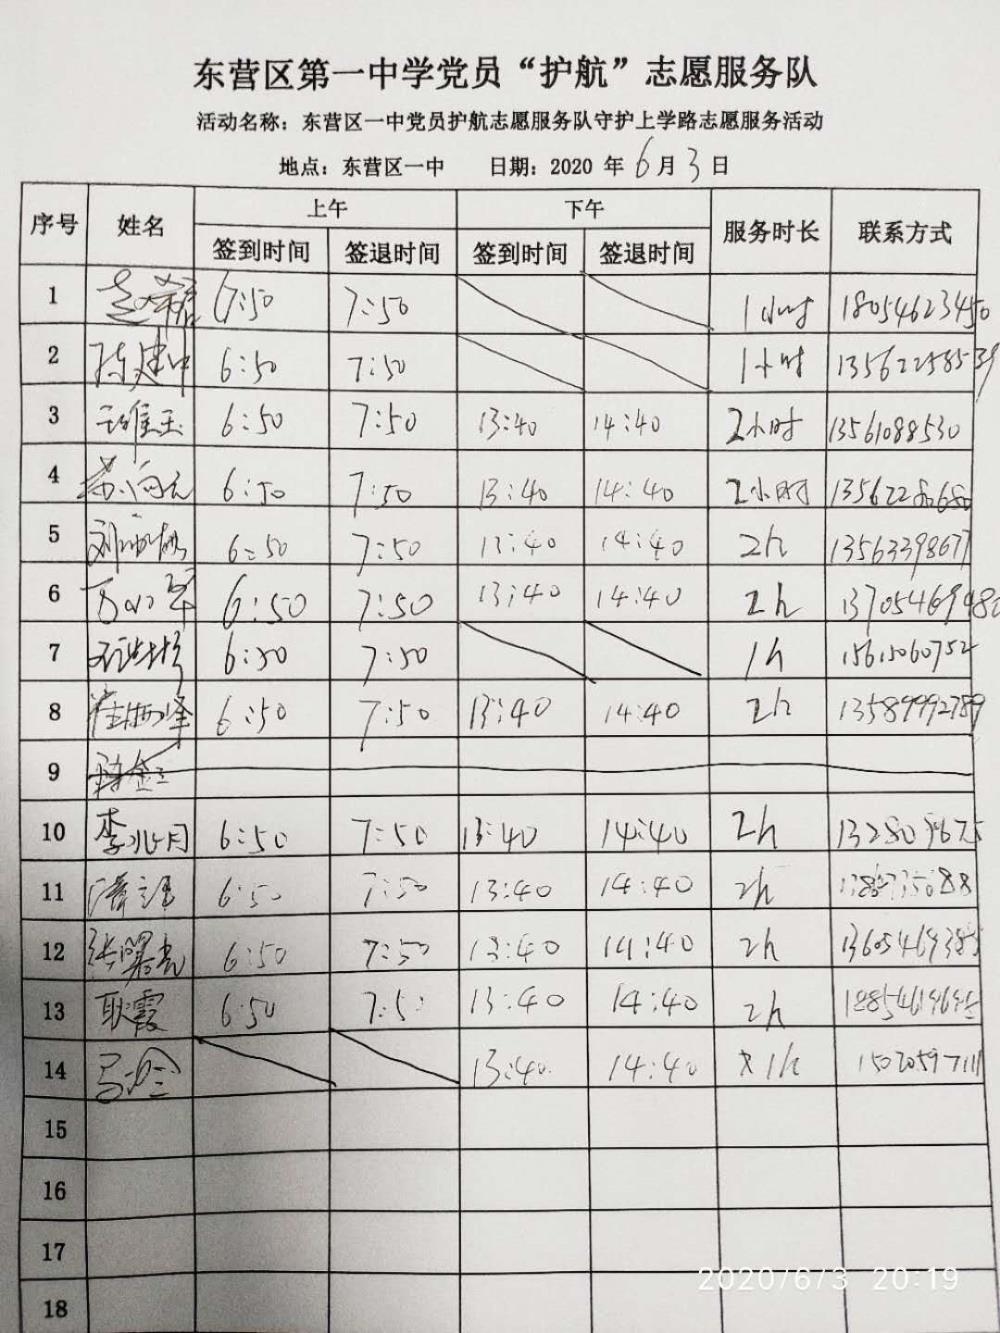 东营区第一中学党员“护航”志愿服务队
活动名称：东营区一中党员护航志愿服务队守护上学路志愿服务活动
地点：东营区一中 日期：2020 年 6 月 3 日
序号 姓名 上午 下午 服务时长 联系方式
签到时间 签退时间 签到时间 签退时间
1 7:50 7:50 1小时 18054623450
2 陈建中 6:50 7:50 1小时 13562258539
3 6:50 7:50 13:40 14:40 2小时 13561088530
4 苏向元 6:50 7:50 13:40 14:40 2小时
5 6:50 7:50 13:40 14:40 2h 13563398677
6 6:50 7:50 13:40 14:40 2h
7 6:50 7:50 1h 15615060752
8 崔西峰 6:50 7:50 13:40 14:40 2h 13589992789
9
10 李兆月 6:50 7:50 13:40 14:40 2h
11 6:50 7:50 13:40 14:40 2h
12 张曙光 6:50 7:50 13:40 14:40 2h 13605469385
13 耿霞 6:50 7:5 13:40 14:40 2h
14 13:40 14:40 1h 15020597111
15
16
17
18
2020/6/3 20:19